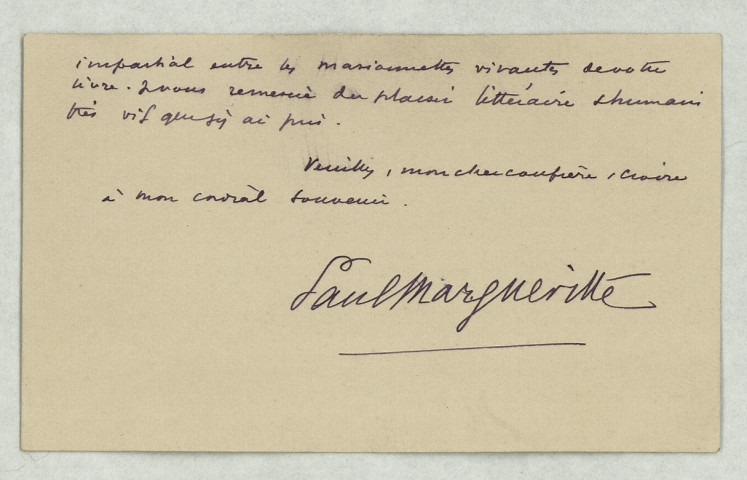 impartial entre les marionnettes vivantes de votre
livre. Je vous remercie du plaisir littéraire & humain
très vif que j'y ai pris.
Veuillez, mon cher confrère, croire
à mon cordial souvenir.
Paul Margueritte